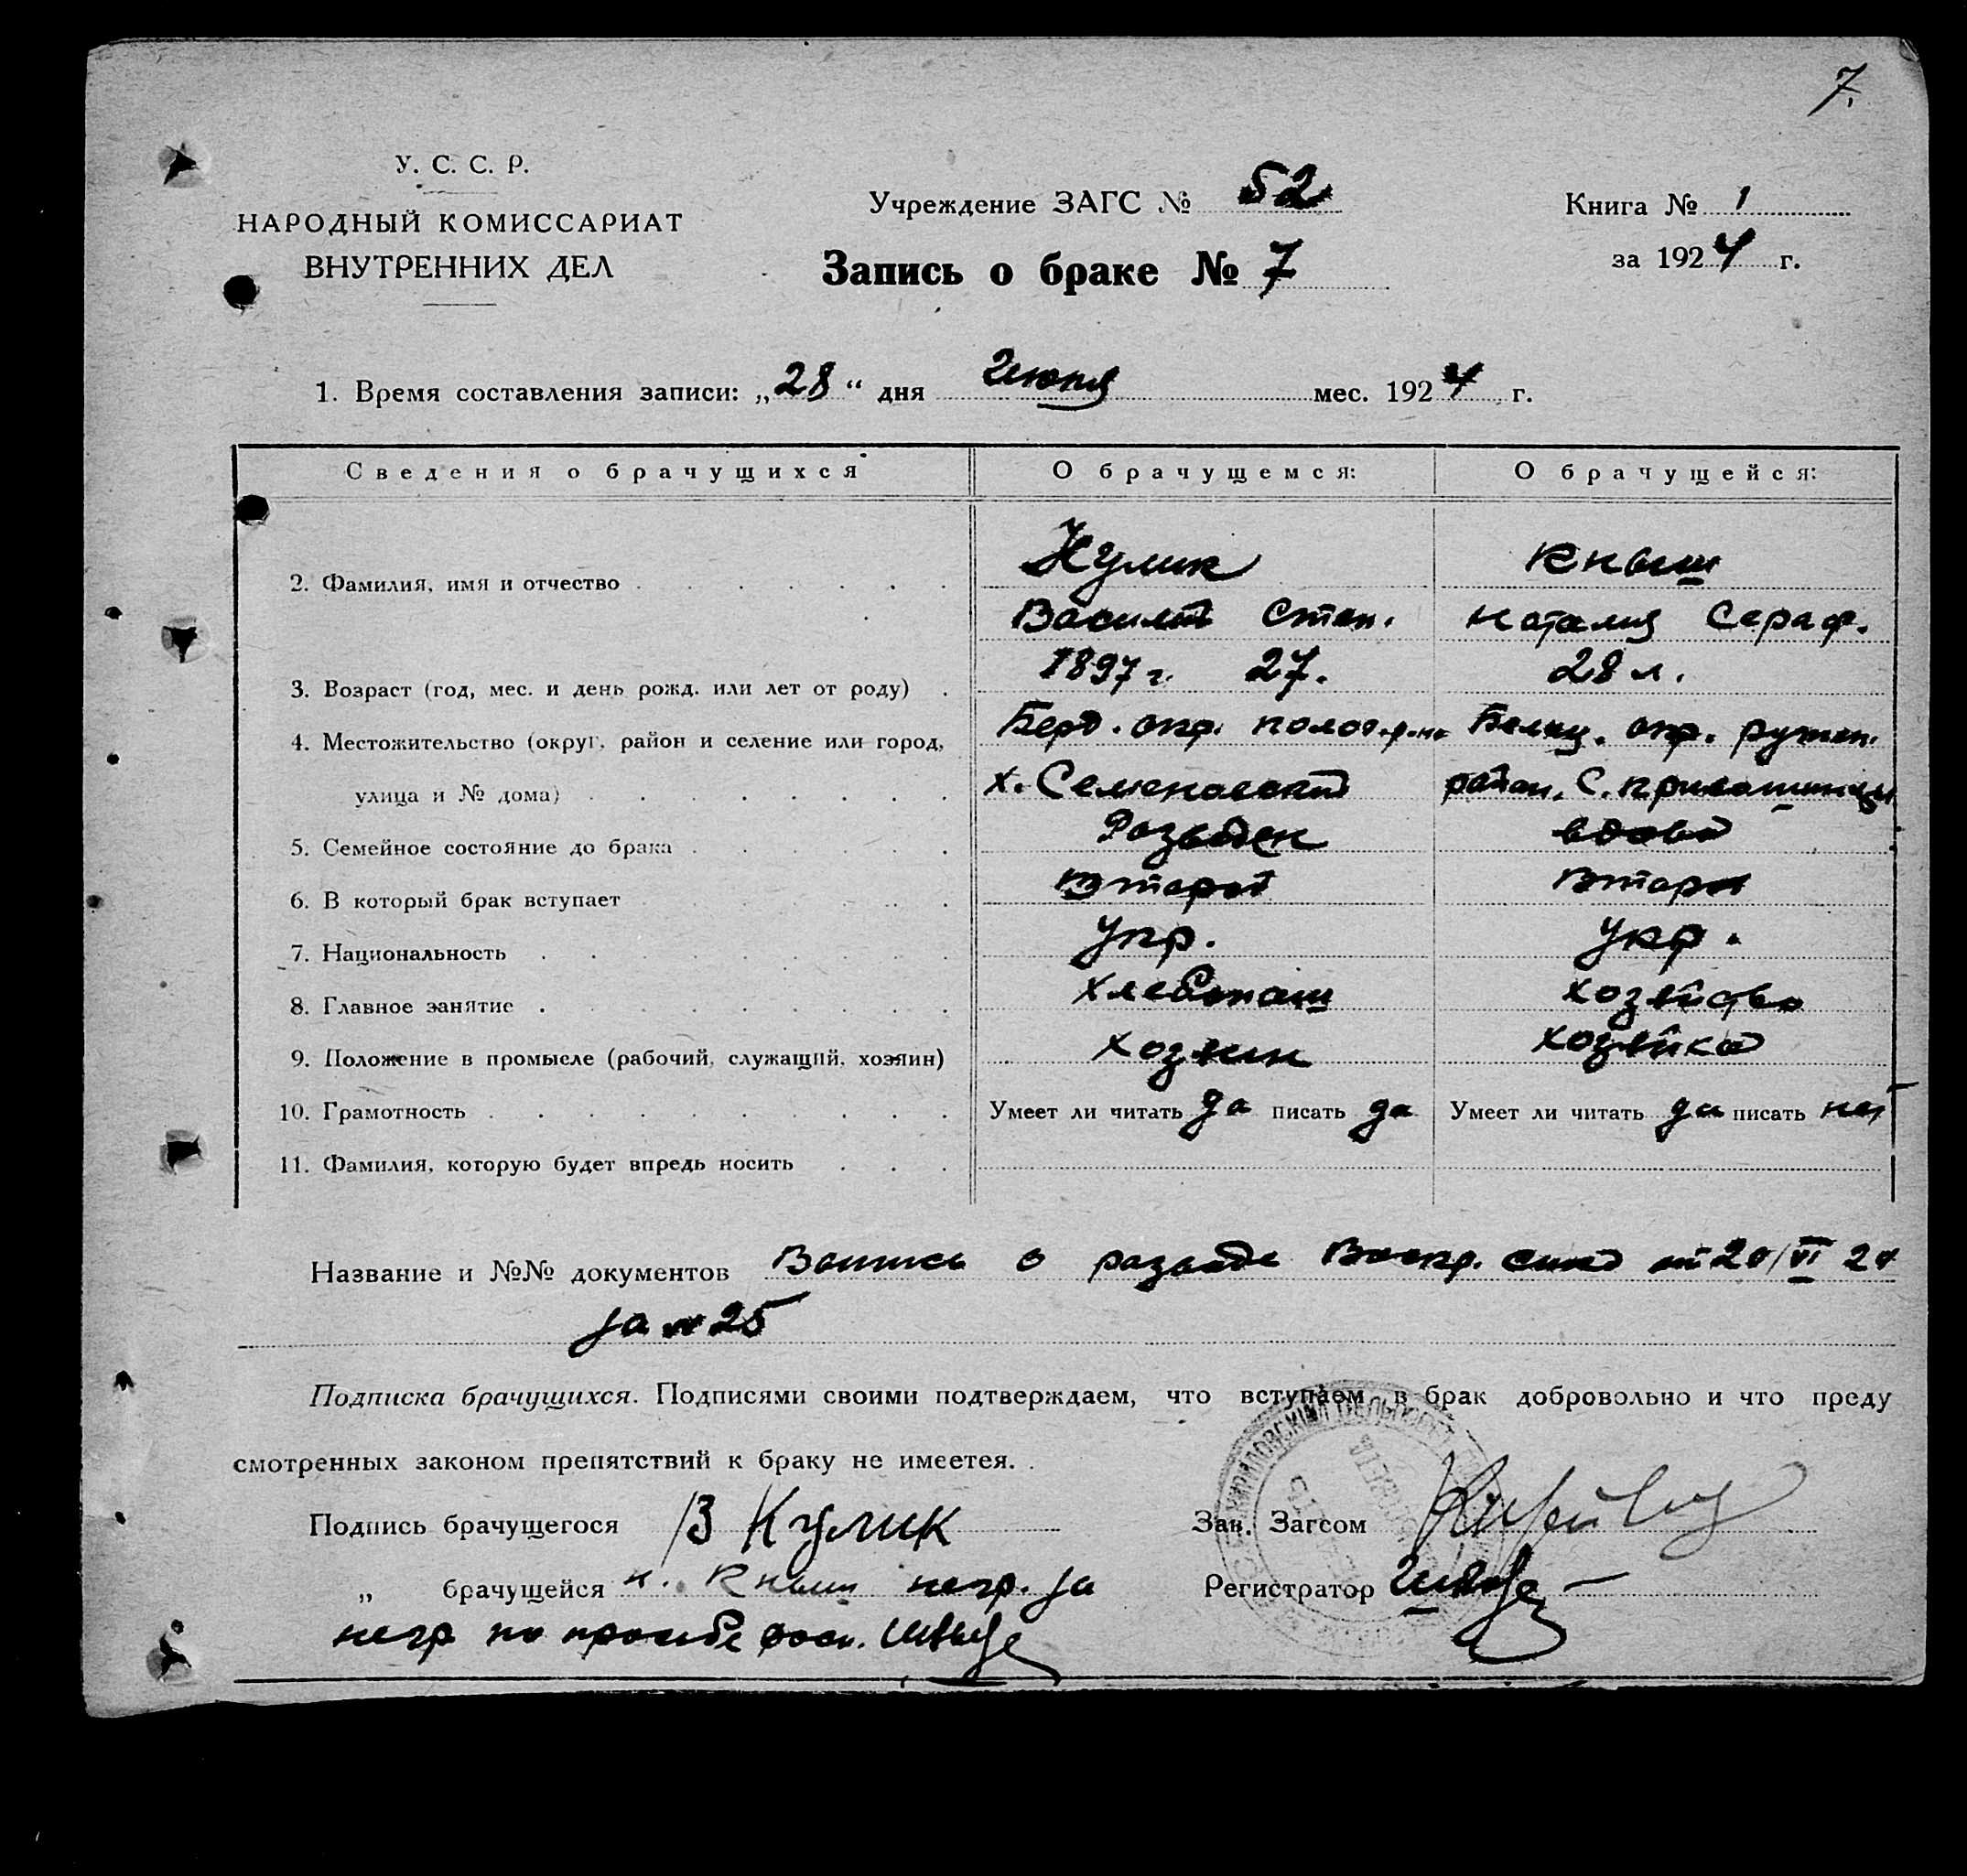 7.
У. С. С. Р.
НАРОДНЫЙ КОМИССАРИАТ
ВНУТРЕННИХ ДЕЛ
Учреждение ЗАГС № 52
Запись о браке № 7
Книга № 1
за 1924 г.
1. Время составления записи: „28“ дня Июня мес. 1924 г.
Сведения о брачущихся О брачущемся: О брачущейся:
2. Фамилия, имя и отчество Кулик Кныш
Василий Степ. Наталия Сераф.
3. Возраст (год, мес. и день рожд. или лет от роду) 1897 г. 27. 28 л.
4. Местожительство (округ, район и селение или город, Берд. окр. Полог. р-на Белоц. окр. Ружен.
улица и № дома) х. Семеновский район, С.
5. Семейное состояние до брака Розведен вдова
6. В который брак вступает Второй Втора
7. Национальность Укр. Укр.
8. Главное занятие хлебопаш хозяйство
9. Положение в промысле (рабочий, служащий, хозяин) хозяин хозяйка
10. Грамотность Умеет ли читать да писать да Умеет ли читать да писать нет
11. Фамилия, которую будет впредь носить
Название и №№ документов о розводе Воскр. от 20/VI 24
за № 25
Подписка брачущихся. Подписями своими подтверждаем, что вступаем в брак добровольно и что преду
смотренных законом препятствий к браку не имеется.
Подпись брачущегося В Кулик Зав. Загсом
„ брачущейся Н. Кныш негр. за Регистратор
негр по прозьбе росп.